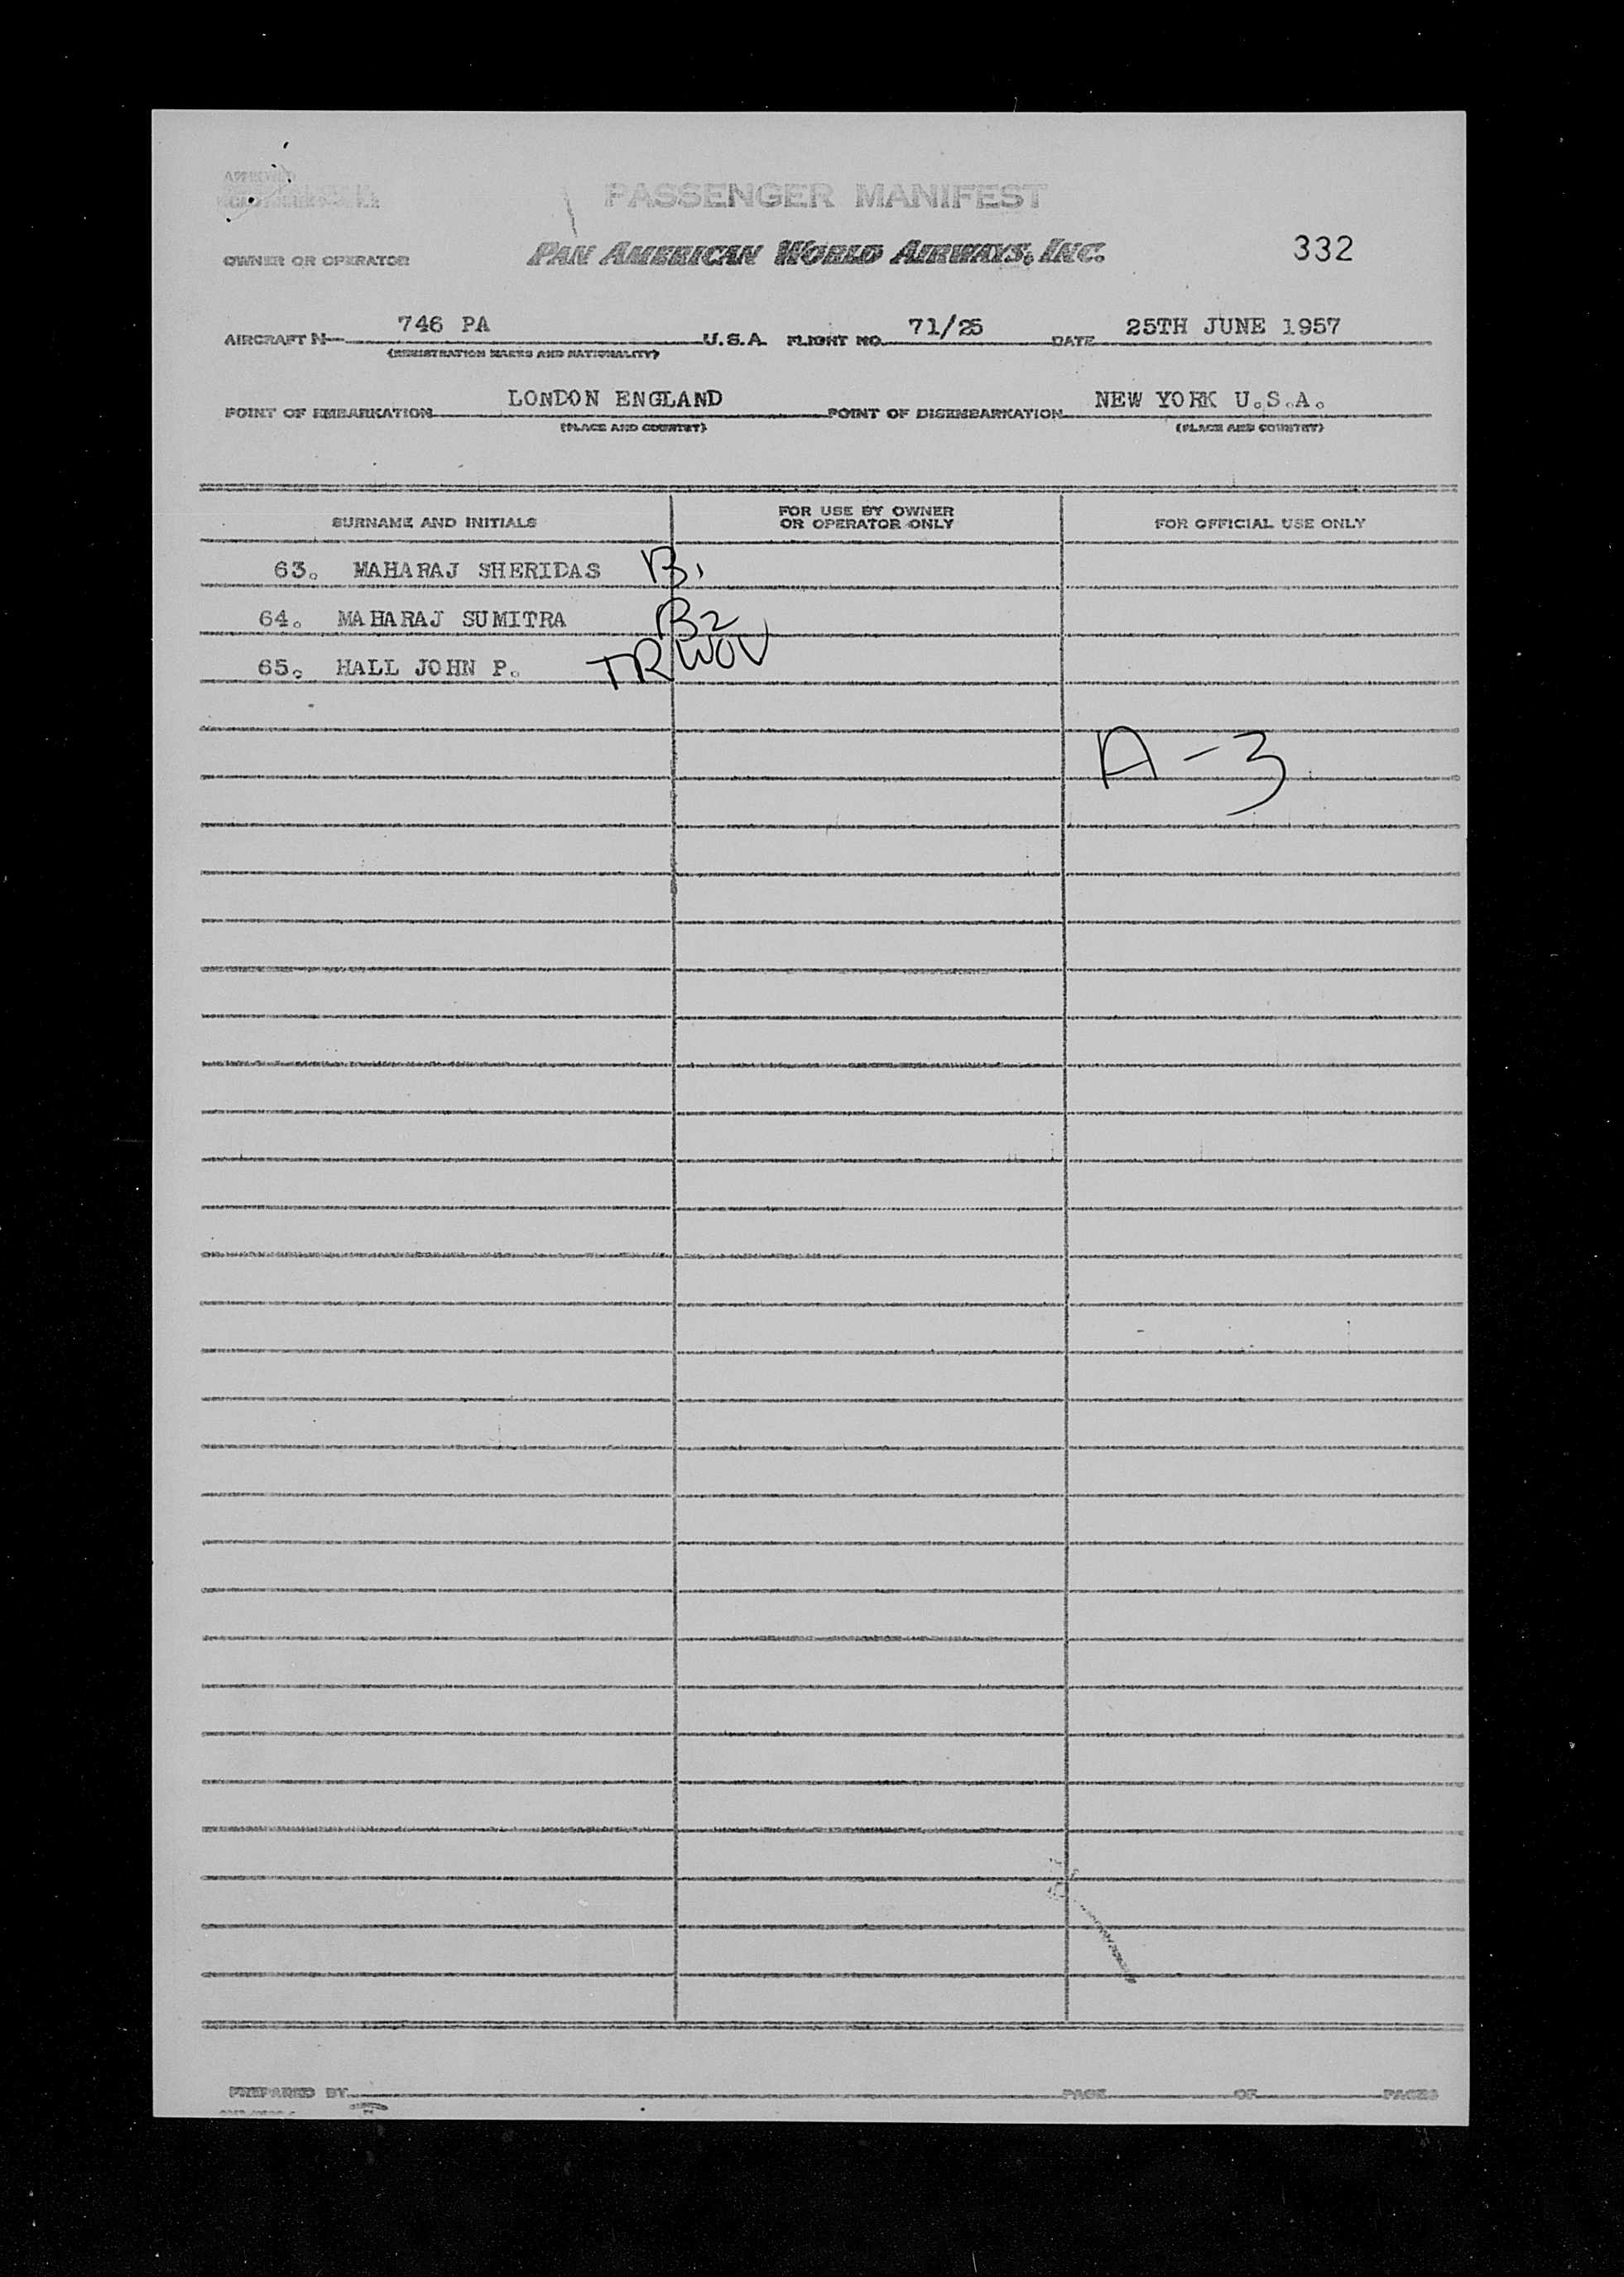 APPROVED
PASSENGER MANIFEST
OWNER OR OPERATOR PAN AMERICAN WORLD AIRWAYS, INC. 332
AIRCRAFT N 746 PA U.S.A. FLIGHT NO. 71/25 DATE 25TH JUNE 1957
(REGISTRATION MARKS AND NATIONALITY)
POINT OF EMBARKATION LONDON ENGLAND POINT OF DISEMBARKATION NEW YORK U.S.A.
(PLACE AND COUNTRY) (PLACE AND COUNTRY)
SURNAME AND INITIALS FOR USE BY OWNER OR OPERATOR ONLY FOR OFFICIAL USE ONLY
63. MAHARAJ SHERIDAS B1
64. MAHARAJ SUMITRA B2
65. HALL JOHN P. TRWOV
A-3
PREPARED BY PAGE OF PAGES